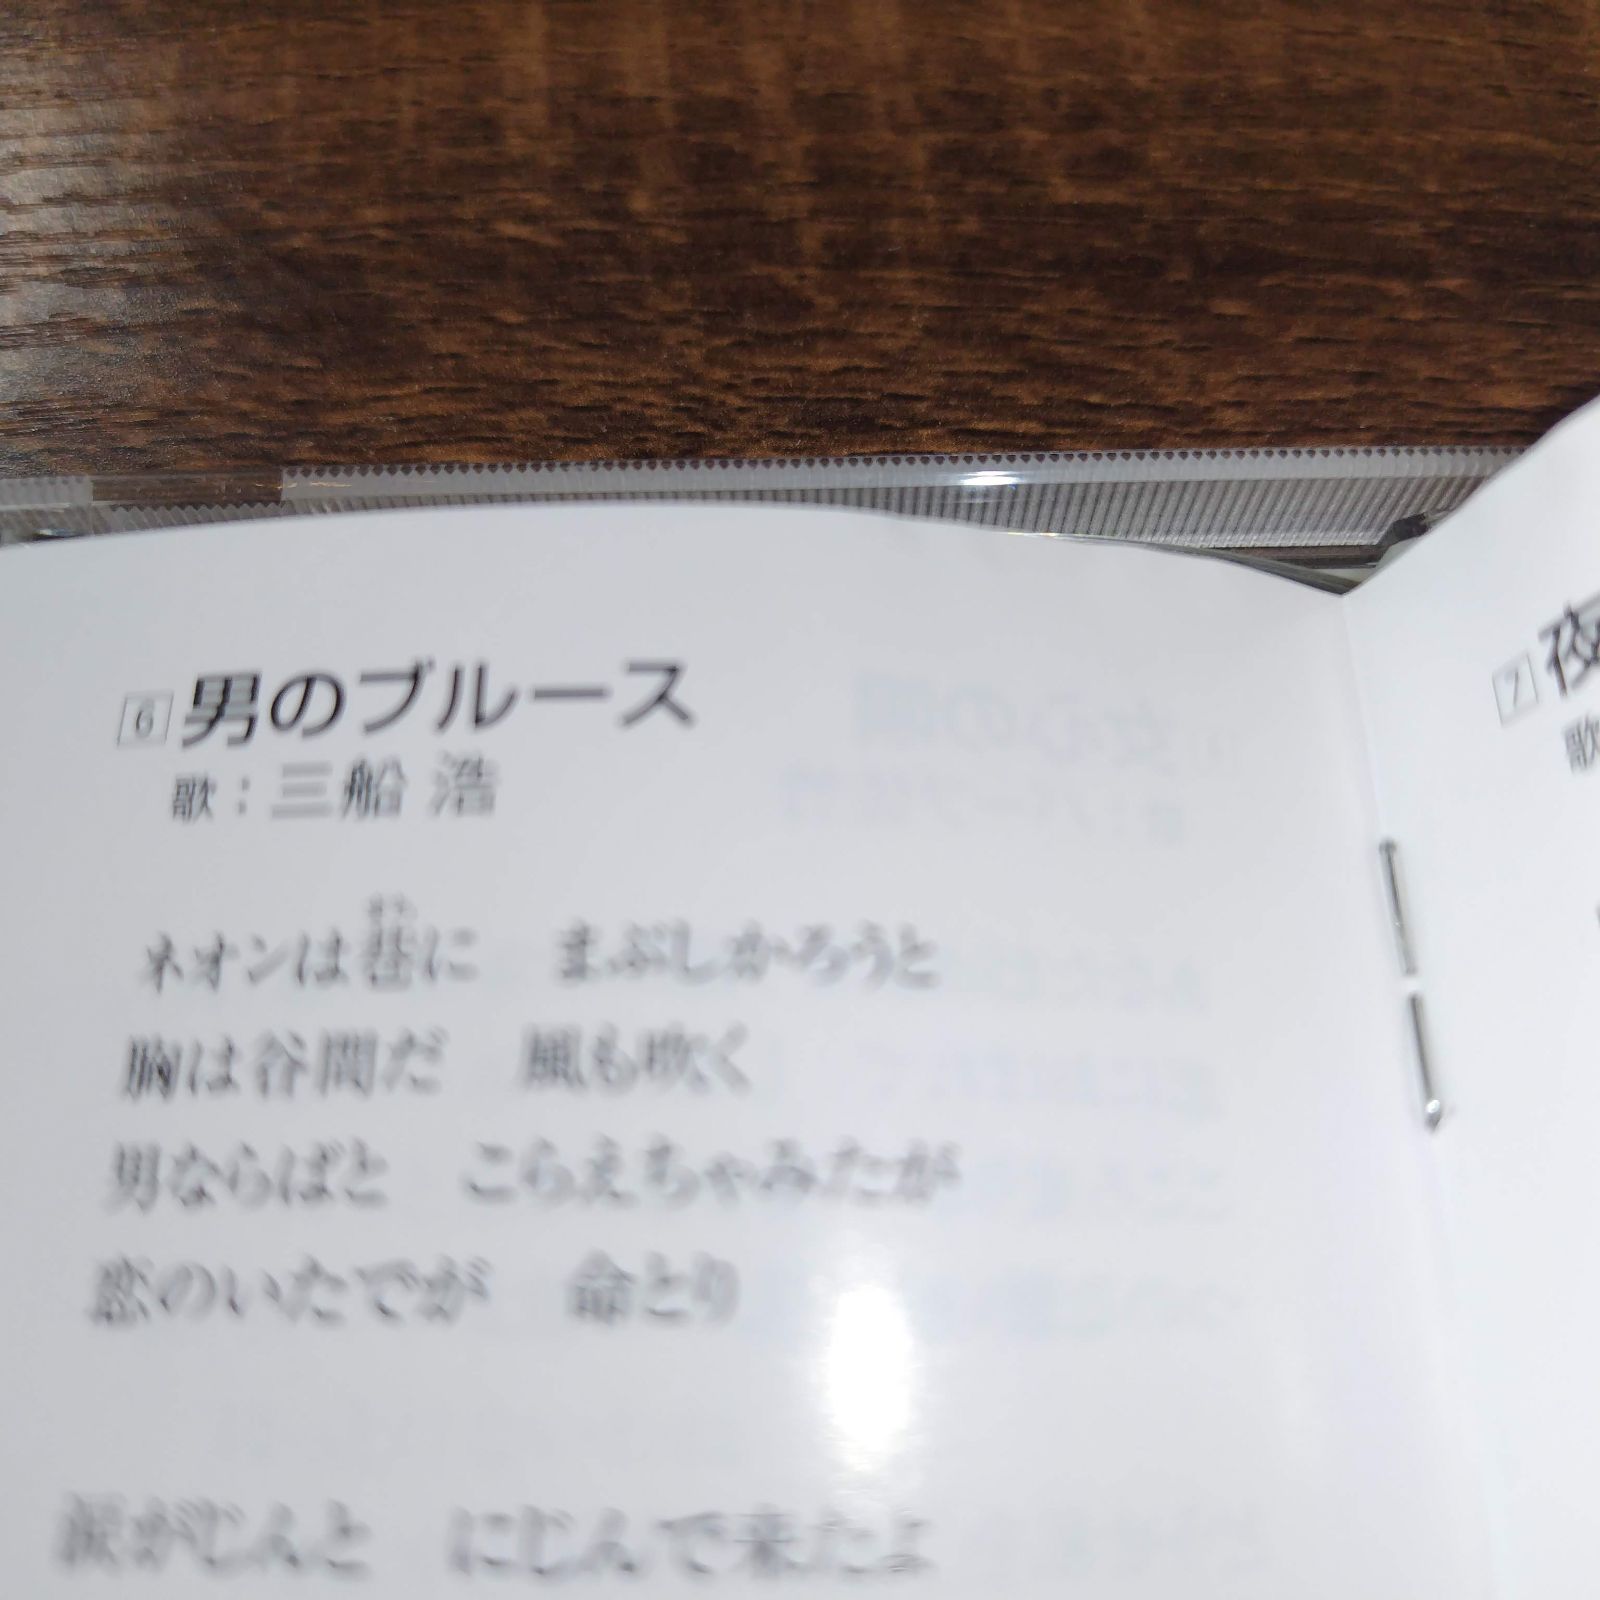 6 男のブルース
歌：三船 浩
ネオンは巷に　まぶしかろうと
胸は谷間だ　風も吹く
男ならばと　こらえちゃみたが
恋のいたでが　命とり
涙がじんと　にじんで来たよ
7 夜
歌